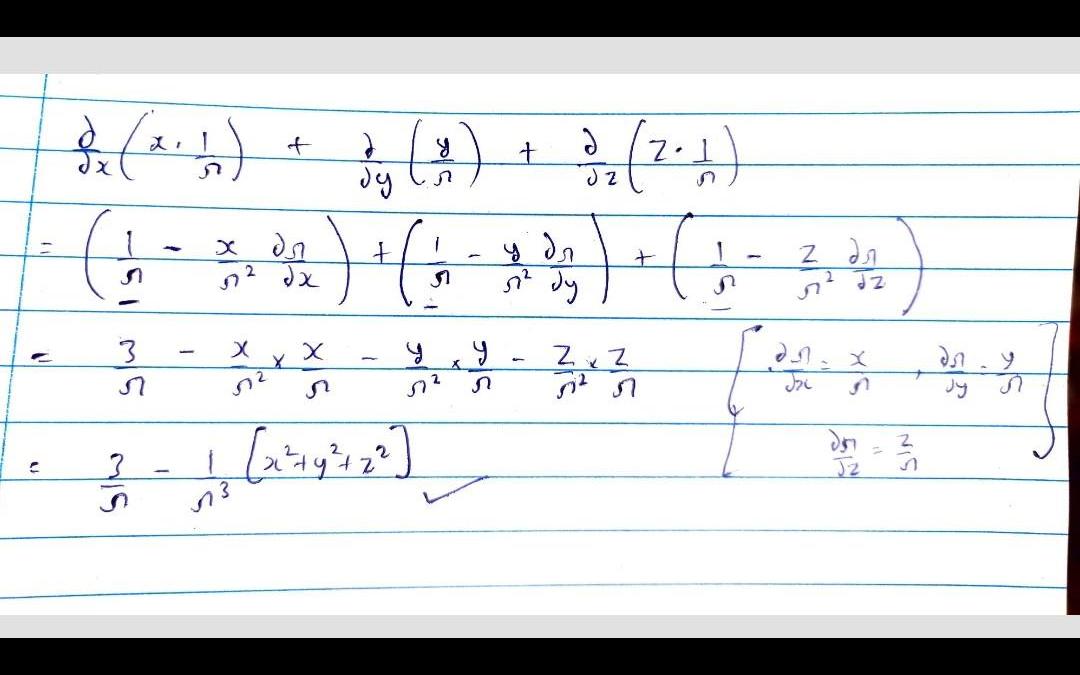 ∂/∂x (x · 1/r) + ∂/∂y (y/r) + ∂/∂z (z · 1/r)
= (1/r − x/r² ∂r/∂x) + (1/r − y/r² ∂r/∂y) + (1/r − z/r² ∂r/∂z)
= 3/r − x/r² × x/r − y/r² × y/r − z/r² × z/r [∂r/∂x = x/r , ∂r/∂y = y/r
∂r/∂z = z/r]
= 3/r − 1/r³ [x² + y² + z²] ✓